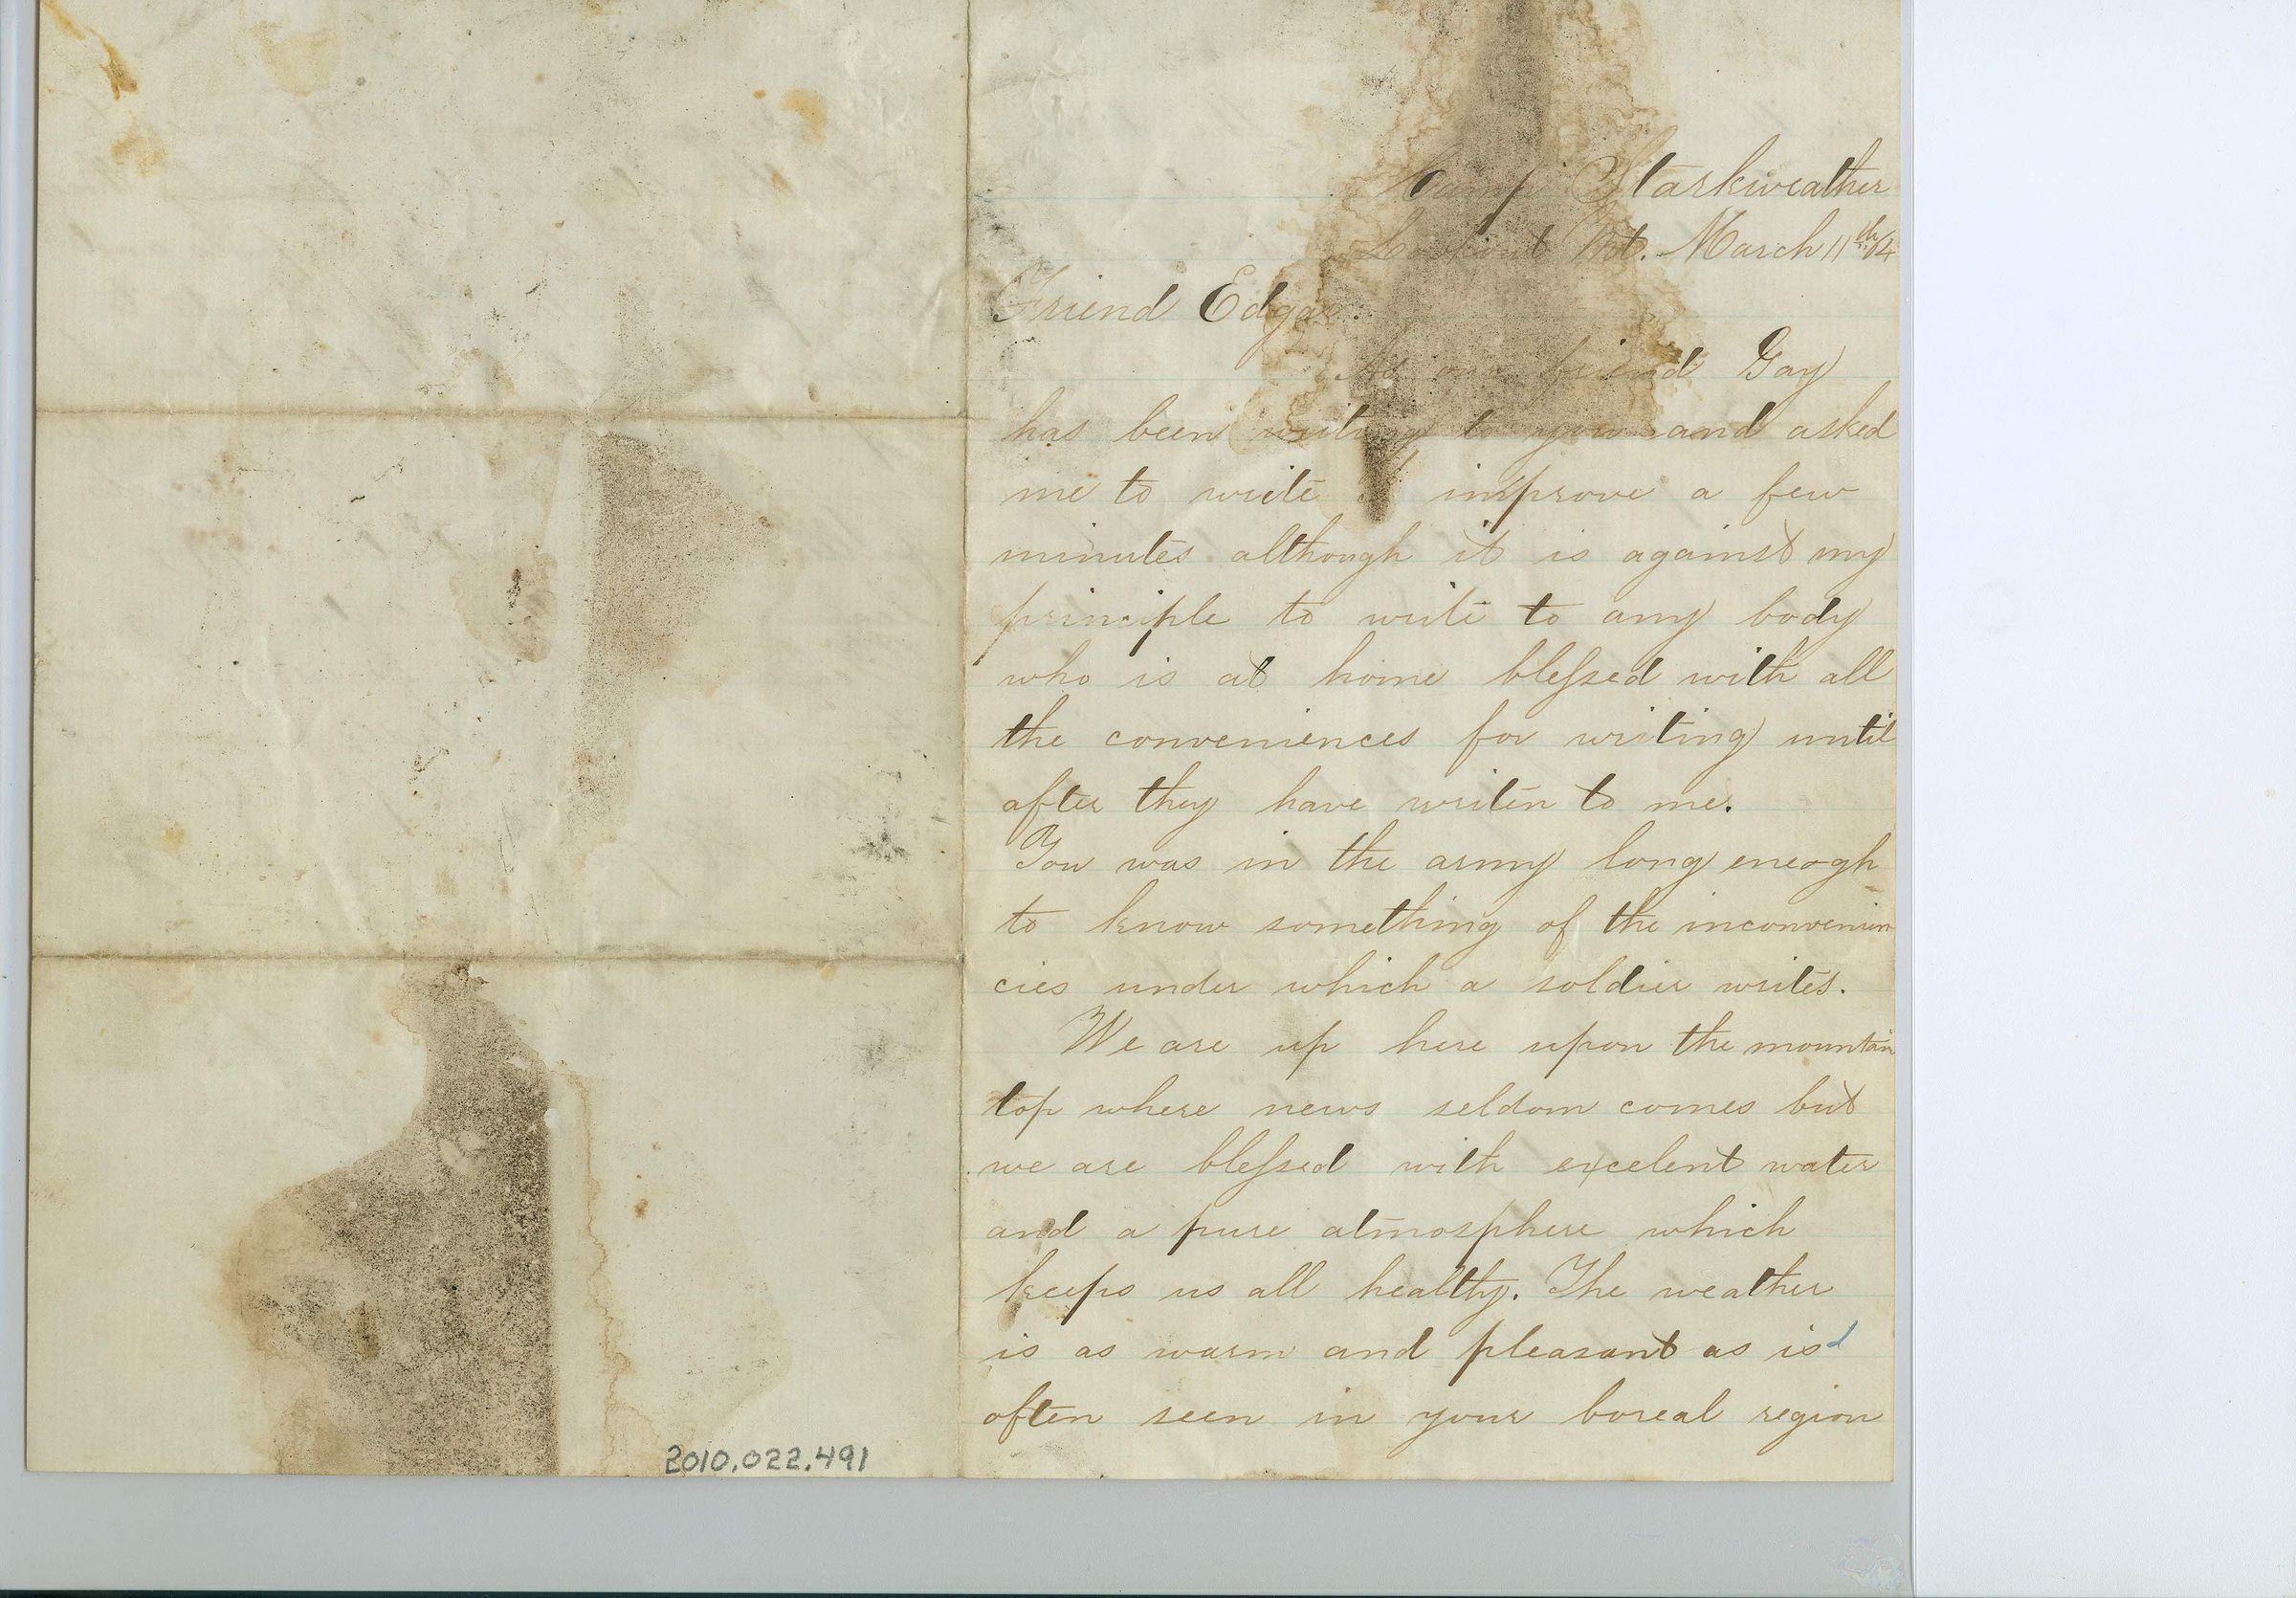 Camp Starkweather
Lookout Mt. March 11th/64
Friend Edgar:
As our friend Gay
has been writing to you and asked
me to write I improve a few
minutes although it is against my
principle to write to any body
who is at home blessed with all
the conveniences for writing until
after they have writen to me.
You was in the army long eneogh
to know something of the inconvenien
cies under which a soldier writes.
We are up here upon the mountain
top where news seldom comes but
we are blessed with excelent water
and a pure atmosphere which
keeps us all healthy. The weather
is as warm and pleasant as is
often seen in your boreal region
2010.022.491